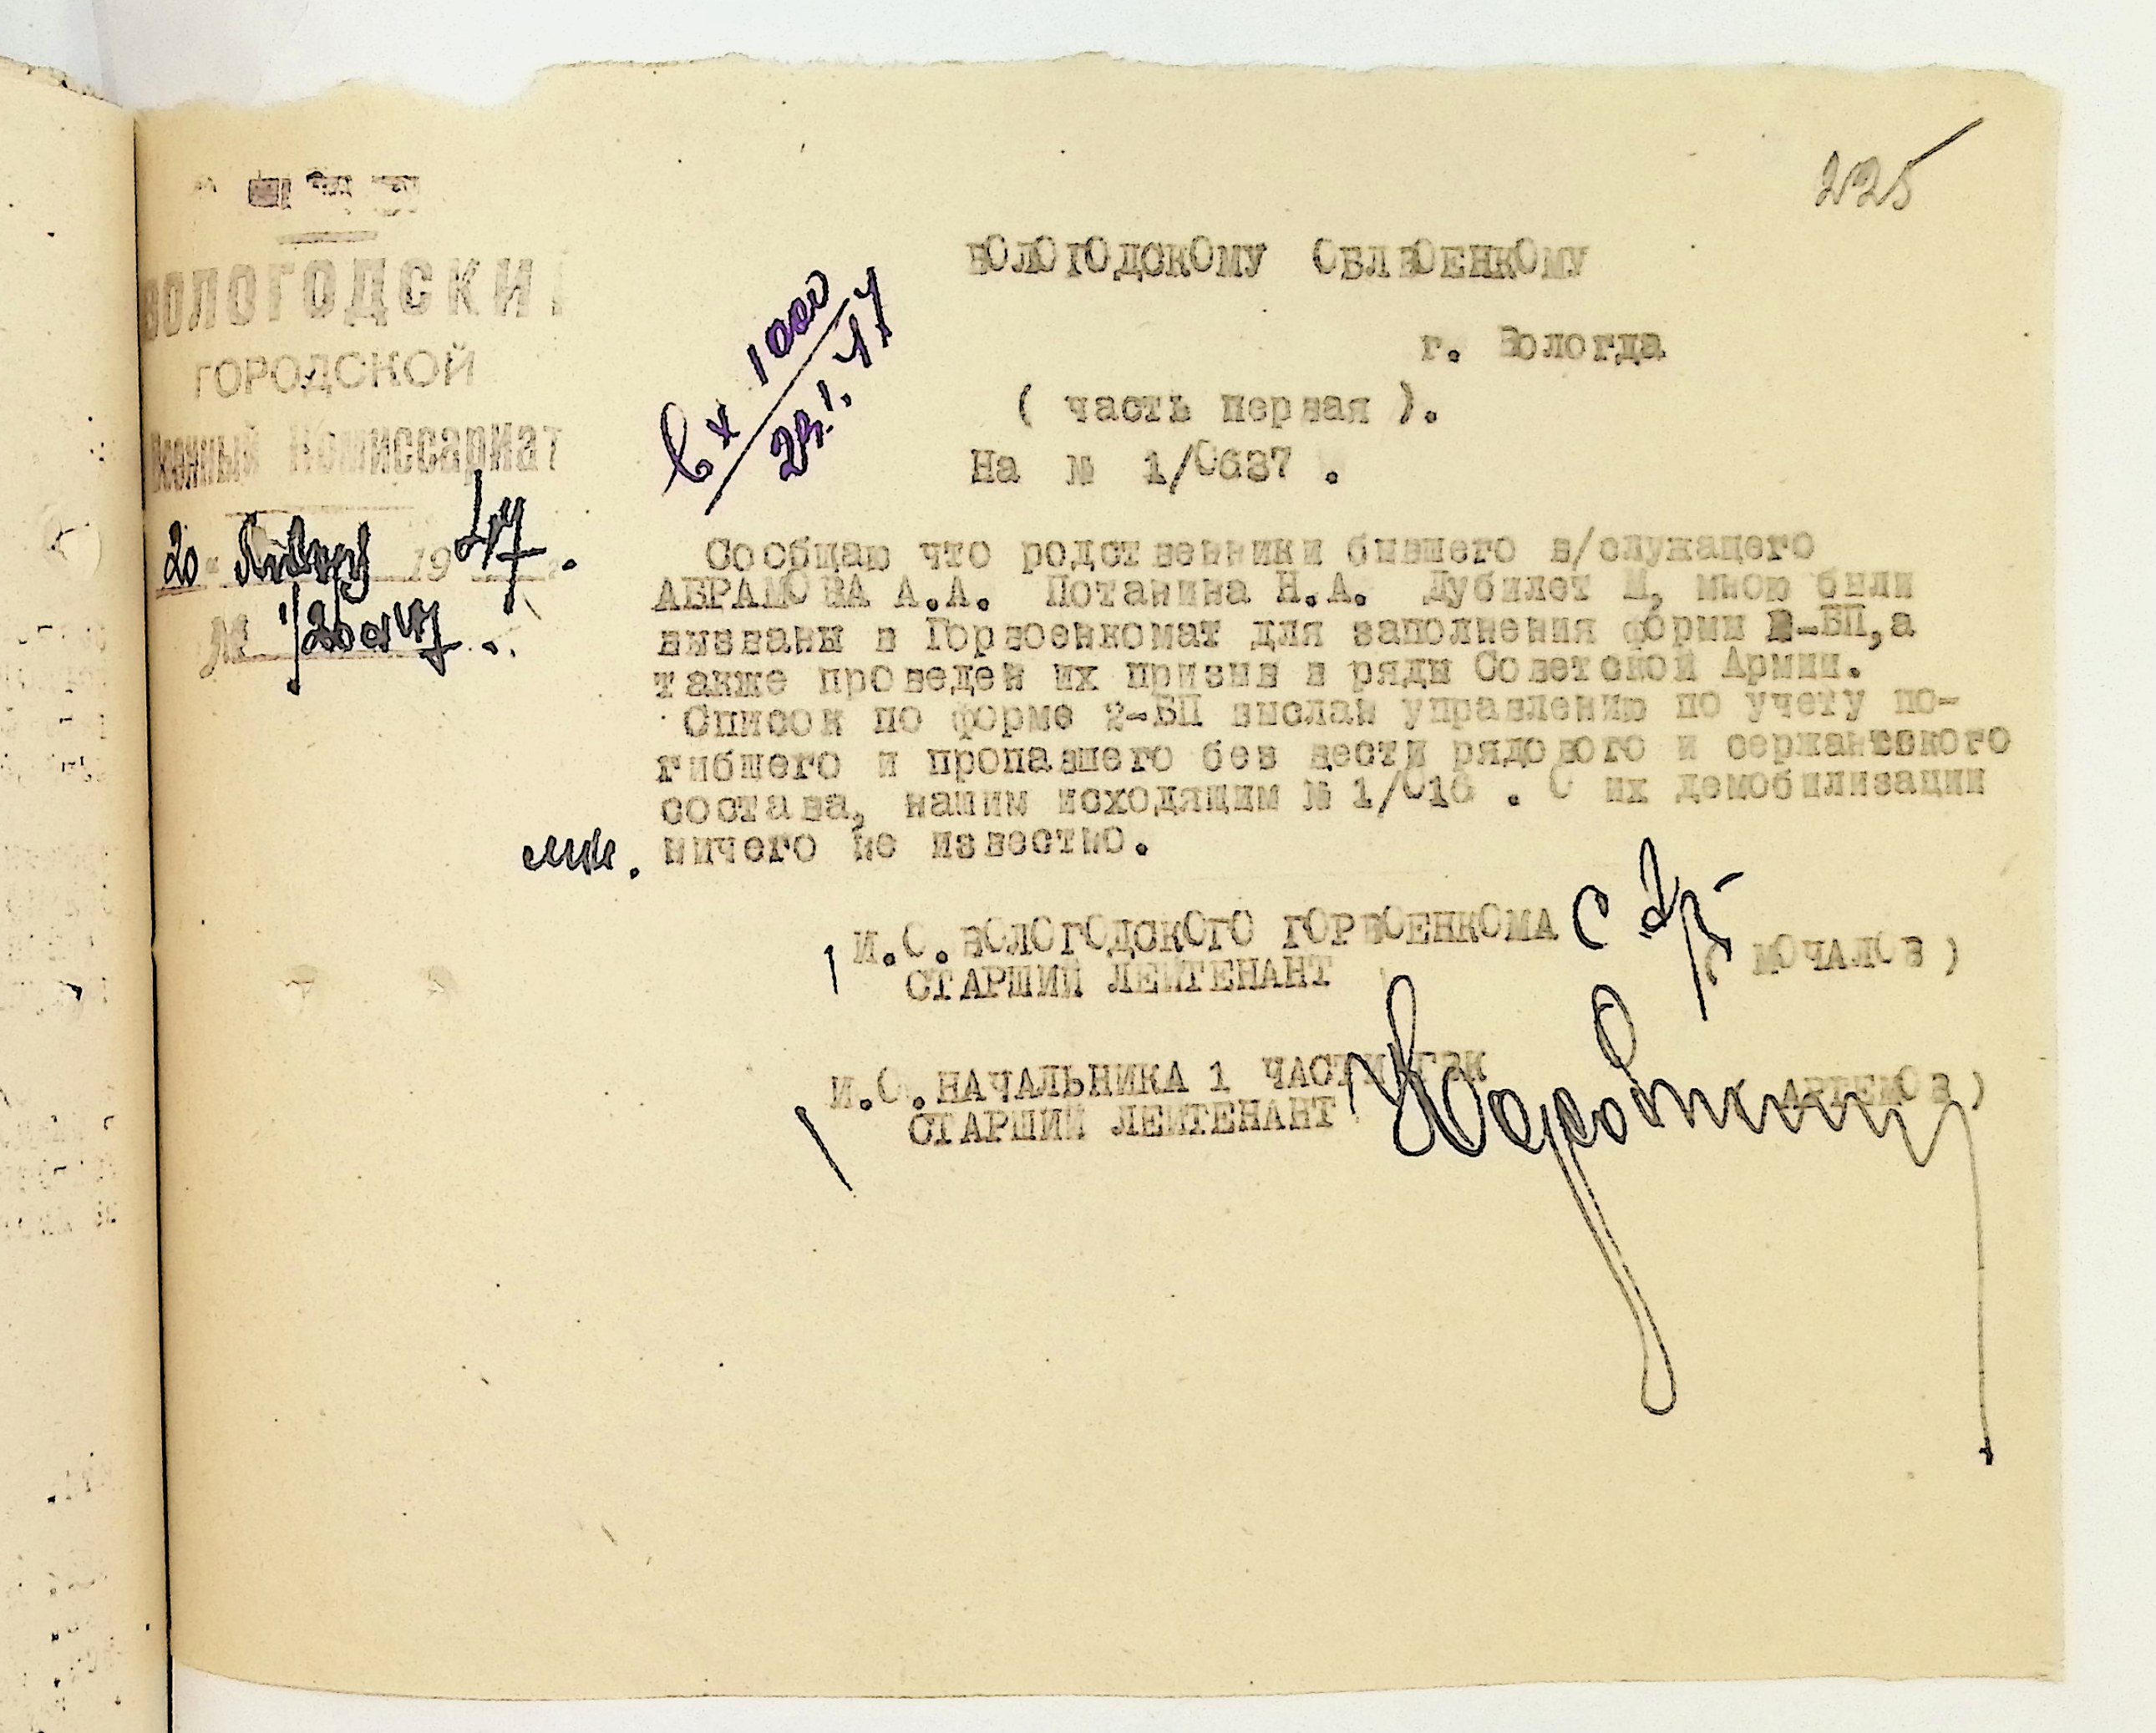 225
ВОЛОГОДСКИЙ
ГОРОДСКОЙ
Военный Комиссариат
20 1947.
№
Вх 1000
ВОЛОГОДСКОМУ ОБЛВОЕНКОМУ
г. Вологда
( часть первая ).
На № 1/0637 .
Сообщаю что родственники бывшего в/служащего
АБРАМОВА А.А. Потанина Н.А. Дубилет М, мною были
вызваны в Горвоенкомат для заполнения формы 2-БП,а
также проведен их призыв в ряды Советской Армии.
Список по форме 2-БП выслан управлению по учету по-
гибшего и пропавшего без вести рядового и сержантского
состава, нашим исходящим № 1/016 . О их демобилизации
ничего не известно.
И.О.ВОЛОГОДСКОГО ГОРВОЕНКОМА
СТАРШИЙ ЛЕЙТЕНАНТ МОЧАЛОВ )
И.О.НАЧАЛЬНИКА 1 ЧАСТИ ГВК
СТАРШИЙ ЛЕЙТЕНАНТ АРТЕМОВ )